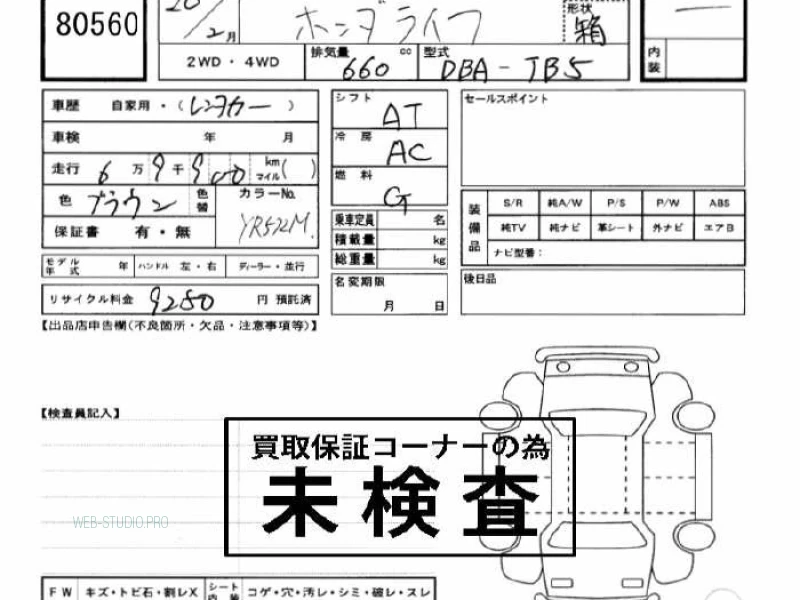 80560
20/2月
ホンダライフ
形状
箱
内装
2WD・4WD
排気量 cc
660
型式
DBA-JB5
車歴 自家用・(レンタカー)
車検 年 月
走行 6万9千900 km マイル( )
色 ブラウン 色替
カラーNo.
YR572M
保証書 有・無
モデル年式 年 ハンドル 左・右 ディーラー・並行
リサイクル料金 9280 円 預託済
シフト
AT
冷房
AC
燃料
G
乗車定員 名
積載量 kg
総重量 kg
名変期限
月 日
セールスポイント
装備品
S/R 純A/W P/S P/W ABS
純TV 純ナビ 革シート 外ナビ エアB
ナビ型番:
後日品
【出品店申告欄(不良箇所・欠品・注意事項等)】
【検査員記入】
買取保証コーナーの為
未検査
WEB-STUDIO.PRO
FW キズ・トビ石・割レX シート内装 コゲ・穴・汚レ・シミ・破レ・スレ